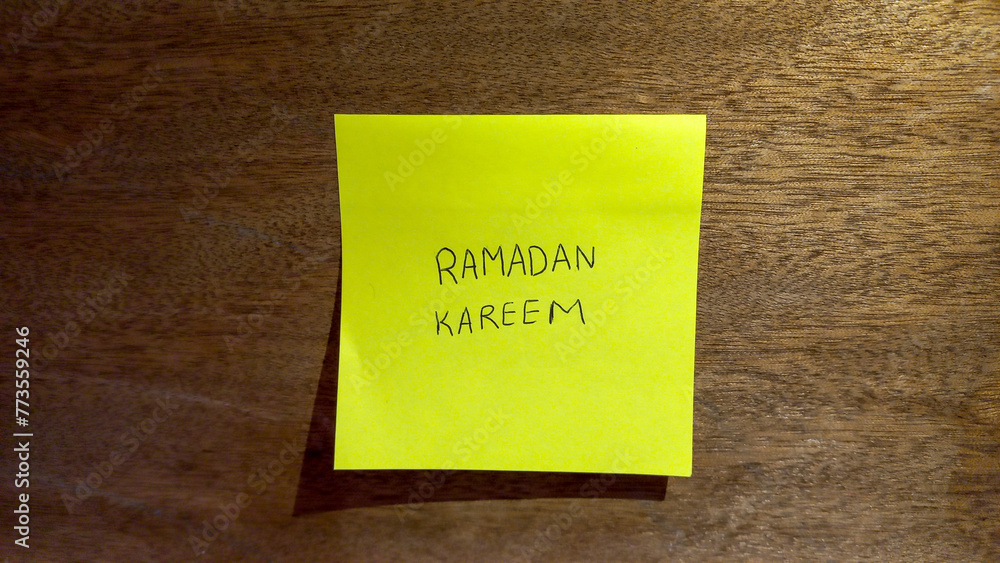 RAMADAN
KAREEM
Adobe Stock | #773559246